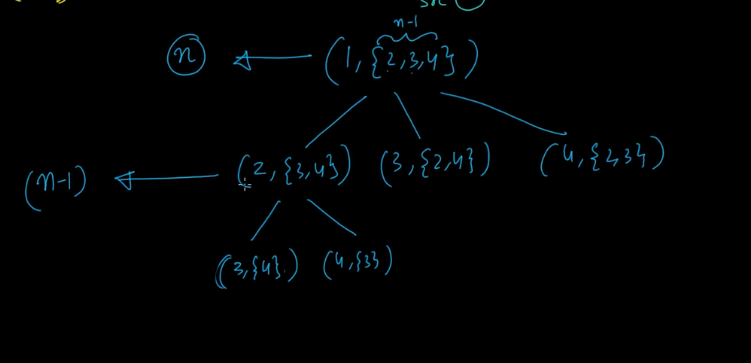 n-1
n (1, {2,3,4})
(n-1) (2, {3,4}) (3, {2,4}) (4, {2,3})
(3, {4}) (4, {3})